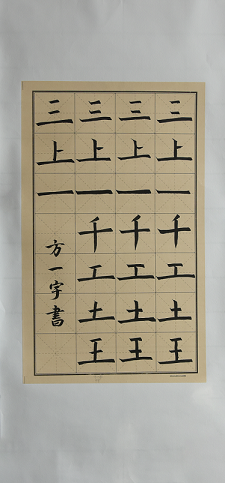 三上一千工土王
三上一千工土王
三上一千工土王
三上一
方一字書